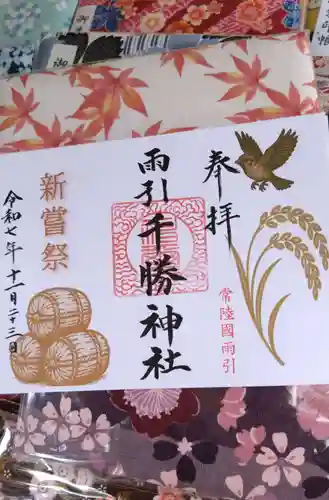 奉拝
常陸國雨引
雨引千勝神社
新嘗祭
令和七年十一月二十三日